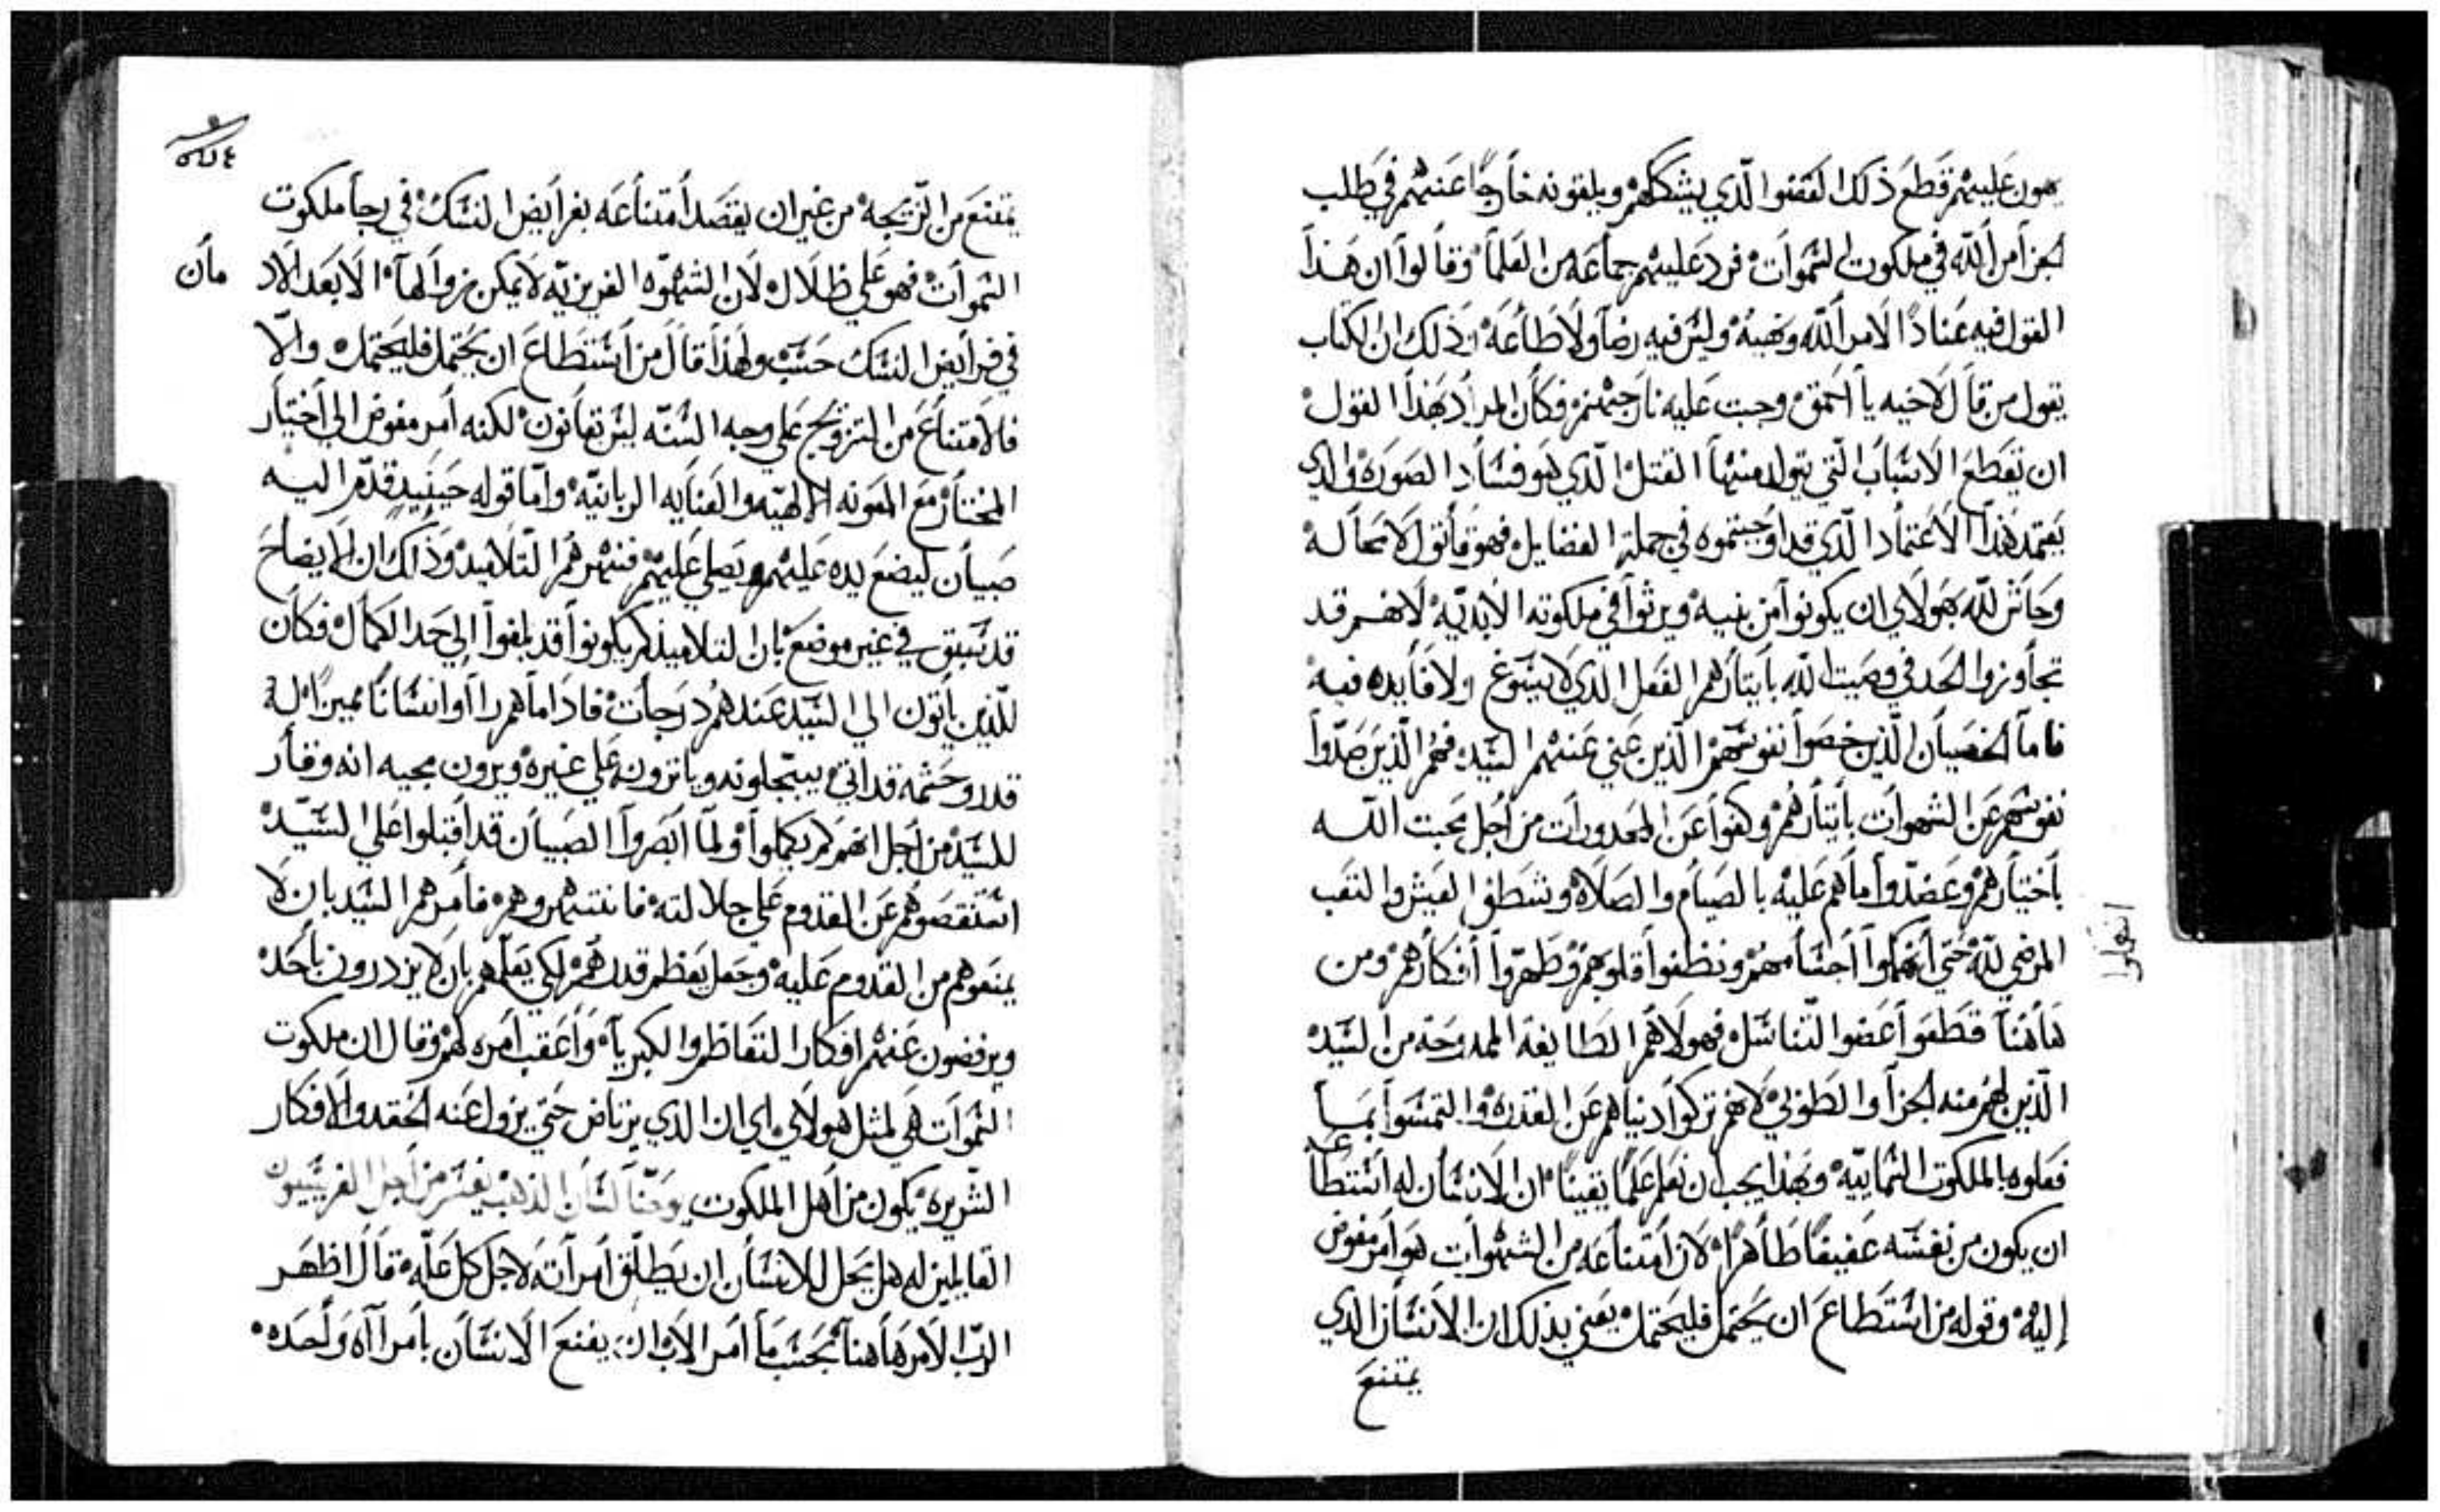 هون عليهم قطع ذلك العضوا الذي يشككهم ويلقونه خارجًا عنهم في طلب
الجزا من الله في ملكوت السموات فرد عليهم جماعه من العلما وقالوا ان هذا
القول فيه عنادًا لامر الله ونهيه وليس فيه رضا ولا طاعة وذلك ان الكتاب
يقول من قال لاخيه يا احمق وجبت عليه نار جهنم فكان المراد بهذا القول
ان تقطع الاسباب التي يتولد منها القتل الذي هو فساد الصورة والذي
يعتمد هذا الاعتماد الذي قد اوجبتموه في جملة الفضايل فهو قاتول لا محاله
وحاش لله هولاي ان يكونوا من بنيه ويرثوا في ملكوته الابديه لانهم قد
تجاوزوا الحد في وصيت الله بايتارهم الفعل الذي لا يسوغ ولا فايده فيه
فاما الخصيان الذين خصوا نفوسهم الذين عني عنهم السيد فهم الذين صدوا
نفوسهم عن الشهوات بايتارهم وكفوا عن المحدورات من اجل محبت الله
باختيارهم وعضدوا ما هم عليه بالصيام والصلاة وشطف العيش والتعب
المرضي لله حتى انهكوا اجسامهم ونظفوا قلوبهم وطهروا افكارهم ومن
هاهنا قطعوا عضوا التناسل فهولا هم الطايفة الممدوحة من السيد
الذين لهم منه الجزا والطوبي لانهم تركوا دنياهم عن القدرة والتمسوا بما
فعلوه الملكوت السماييه وبهذا يجب ان نعلم علمًا يقينًا ان الانسان له استطاعه
ان يكون من نفسه عفيفًا طاهرًا لان امتناعه من الشهوات هو امر مفوض
إليه وقوله من استطاع ان يحتمل فليحتمل يعني بذلك ان الانسان الذي
يمتنع
انهكوا
يمتنع من التزيجه من غير ان يقصد امتناعه بفرايض النسك في رجا ملكوت
السموات فهو على ظلال لان الشهوه الغريزيه لا يمكن زوالها الا بعد الاد
مان
في فرايض النسك حسب ولهذا قال من استطاع ان يحتمل فليحتمل والّا
فالامتناع من التزويج على وجه السنه ليس بقانون لكنه امر مفوض الى اختيار
المختار مع المعونه الالهيه والعنايه الربانيه واما قوله حينيد قدم اليه
صبيان ليضع يده عليهم ويصلي عليهم فنهرهم التلاميد وذلك ان الايضاح
قد سبق في غير موضع بان التلاميذ لم يكونوا قد بلغوا إلى حد الكمال فكان
للذين ياتون الى السيد عندهم درجات فاذا ما هم راوا انسانًا مميزًا له
قدر وحشمه قد اتى يبجلونه وياترونه على غيره ويرون مجيه انه وقار
للسيد من اجل انهم لم يكملوا ولما ابصروا الصبيان قد اقبلوا على السيد
استنقصوهم عن القدوم على جلالته فانتهروهم فامرهم السيد بان لا
يمنعوهم من القدوم عليه وجعل يعظم قدرهم لكي يعلمهم بان لا يزدرون باحد
ويرفضون عنهم افكار التعاظم والكبريا واعقب امره لهم وقال ان ملكوت
السموات هى لمثل هولاي اي ان الذي يرتاض حتى يزول عنه الحقد والافكار
الشريره يكون من اهل الملكوت يوحنا لسان الذهب يفسر من اجل الفريسيون
القايلين له هل يحل للانسان ان يطلّق امراته لاجل كل علّه قال اظهر
الرب الامر هاهنا بحسب ما امر الاب ان يقنع الانسان بامراه واحده